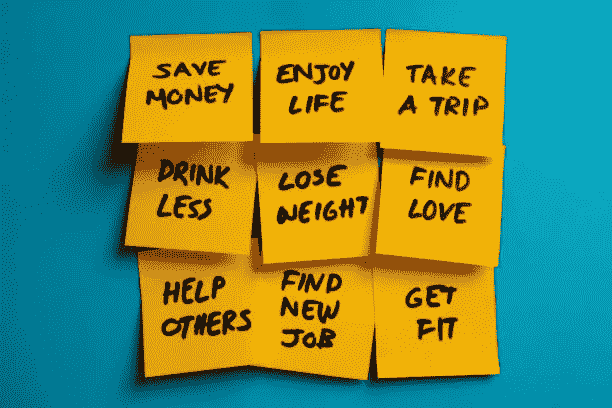 SAVE
MONEY
ENJOY
LIFE
TAKE
A TRIP
DRINK
LESS
LOSE
WEIGHT
FIND
LOVE
HELP
OTHERS
FIND
NEW
JOB
GET
FIT